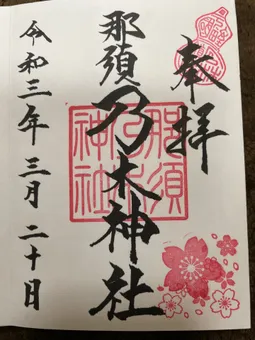 奉拝
那須乃木神社
那須乃木神社
令和三年三月二十日